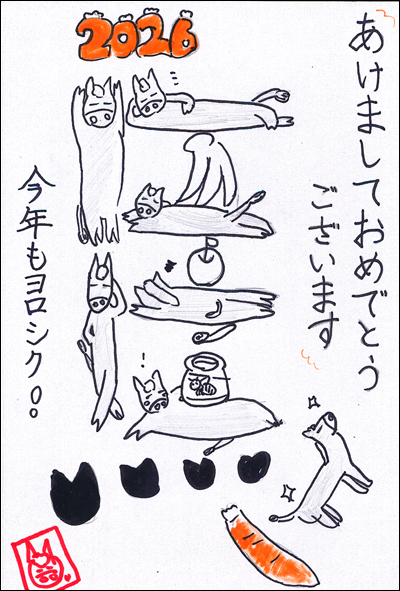 2026
あけましておめでとう
ございます
今年もヨロシク。。